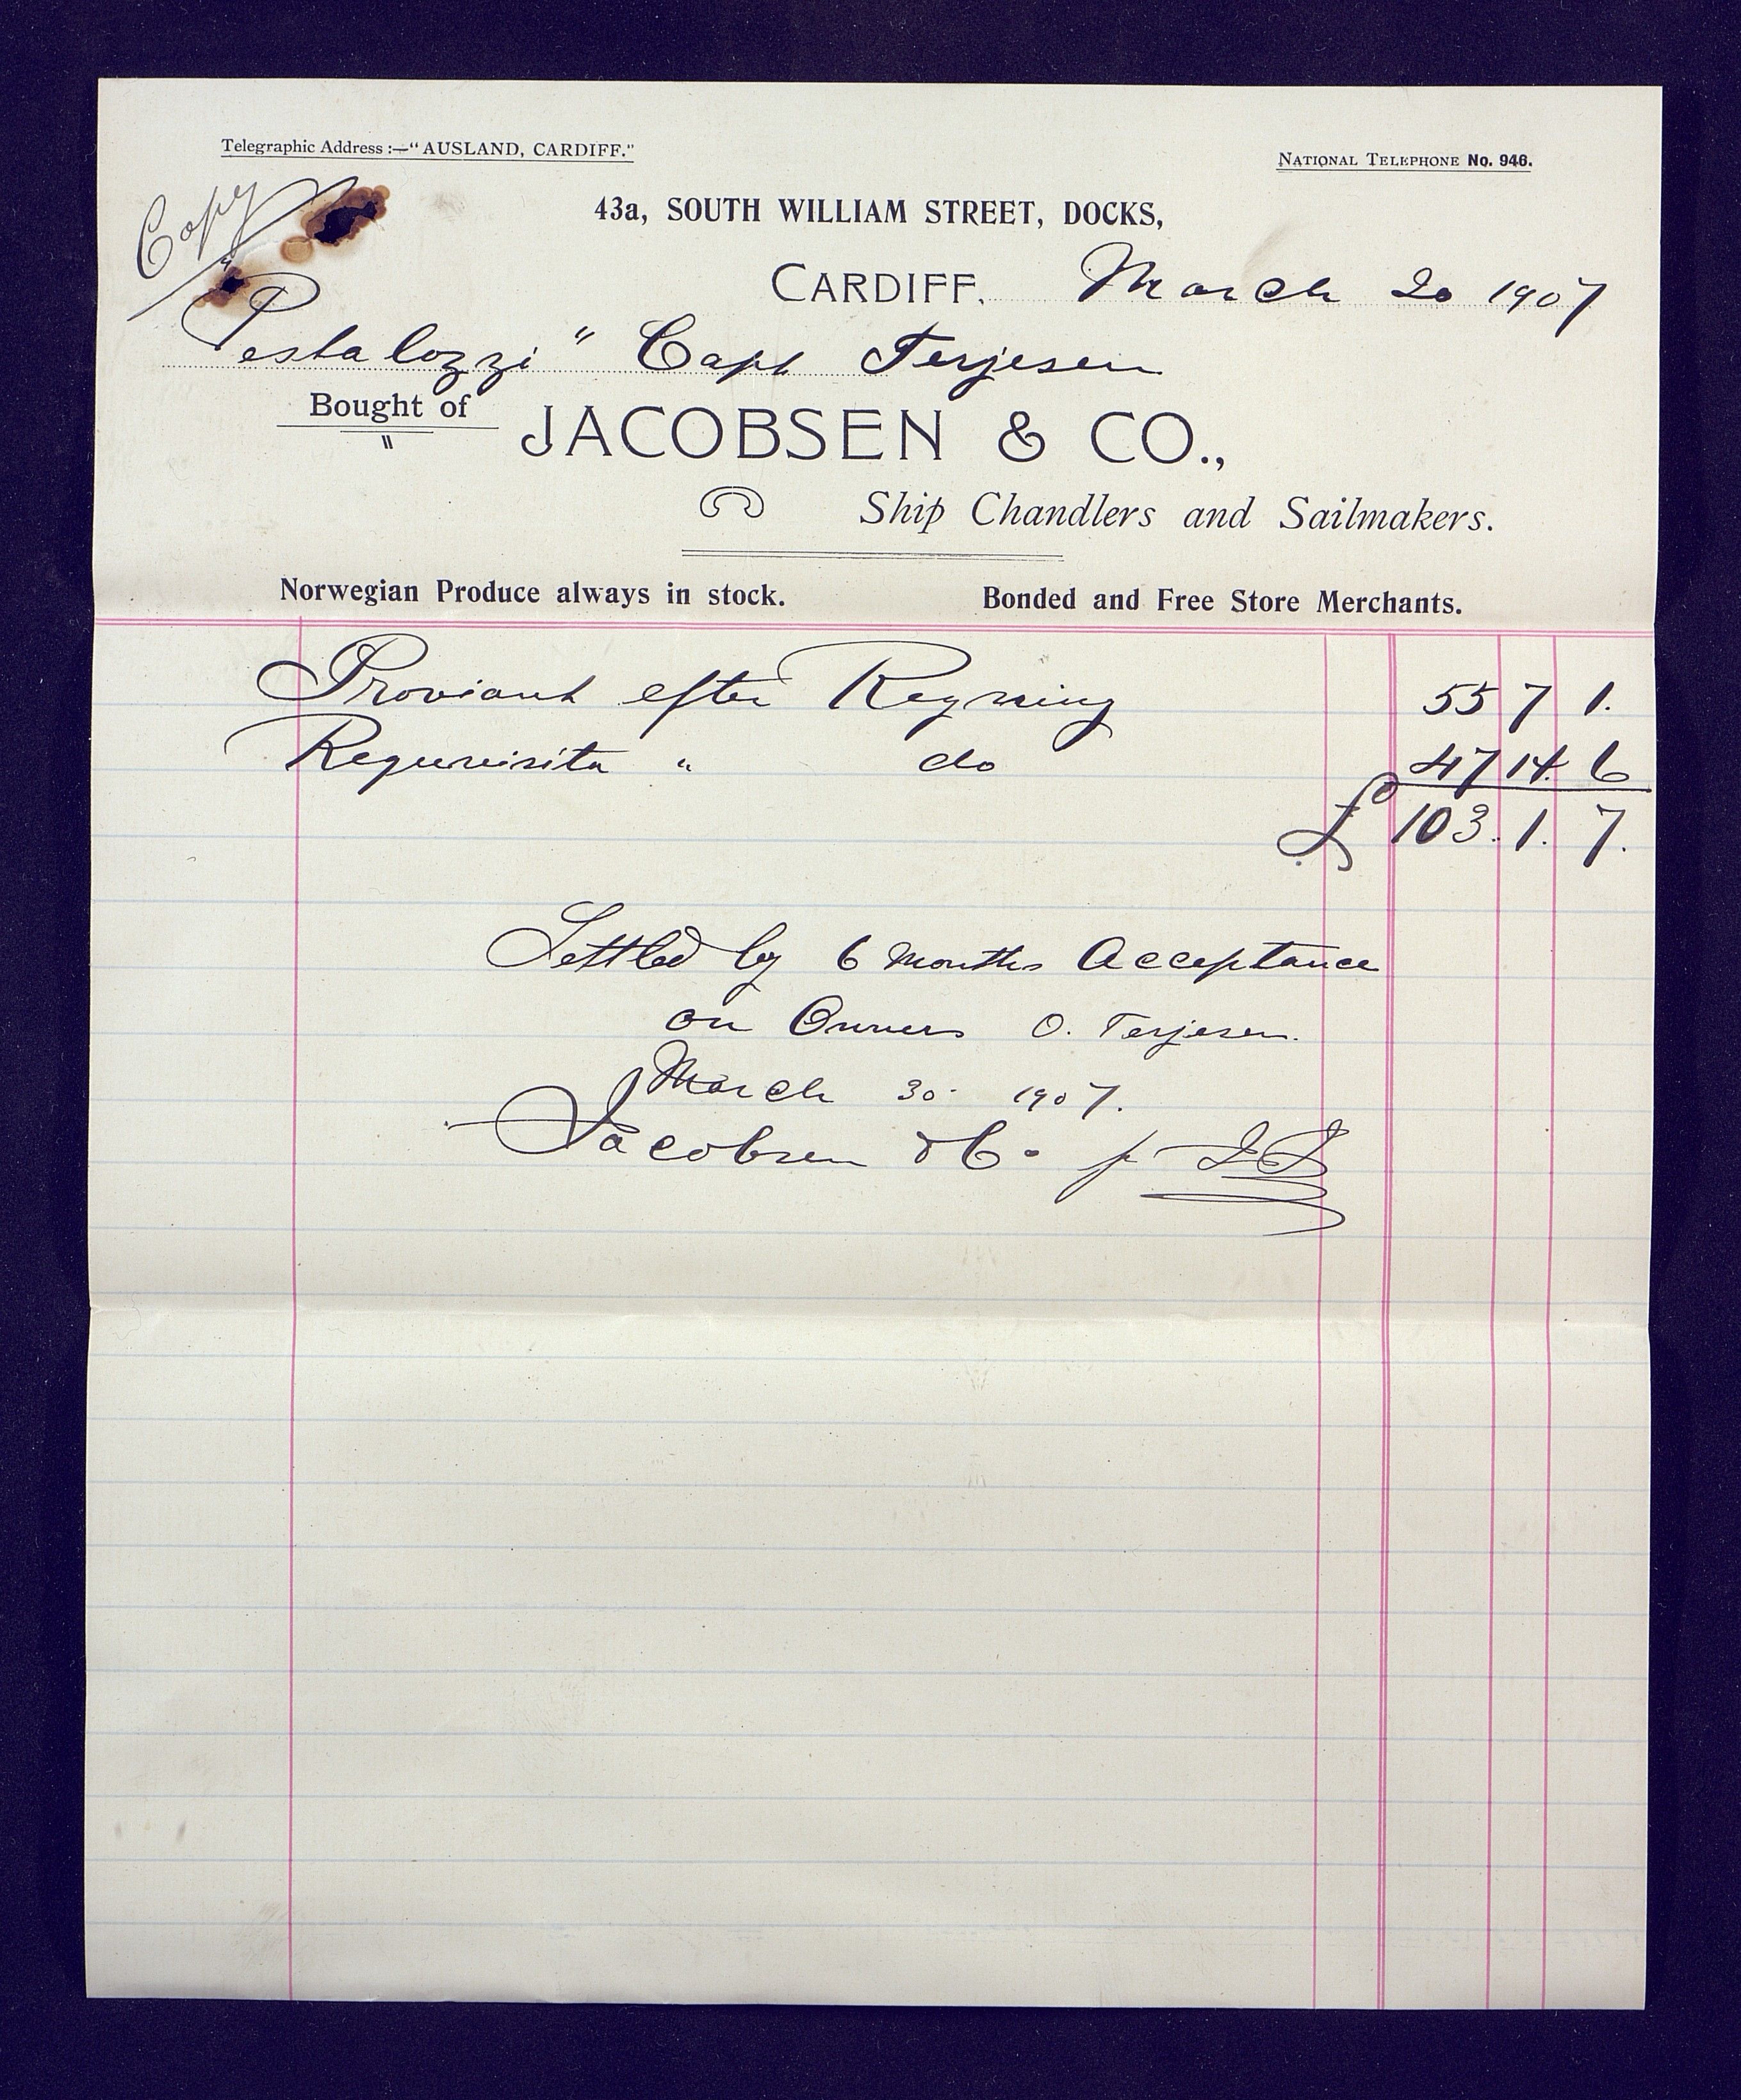 Telegraphic Address :—"AUSLAND, CARDIFF."
NATIONAL TELEPHONE No. 946.
Copy
43a, SOUTH WILLIAM STREET, DOCKS,
CARDIFF, March 20 1907
"Pestalozzi" Capt Terjesen
Bought of JACOBSEN & CO.,
Ship Chandlers and Sailmakers.
Norwegian Produce always in stock. Bonded and Free Store Merchants.
Proviant efter Regning 55 7 1.
Requisita " do 47 14. 6
£ 103. 1. 7.
Settled by 6 Months Acceptance
on Owners O. Terjesen.
March 30 1907.
Jacobsen & Co p